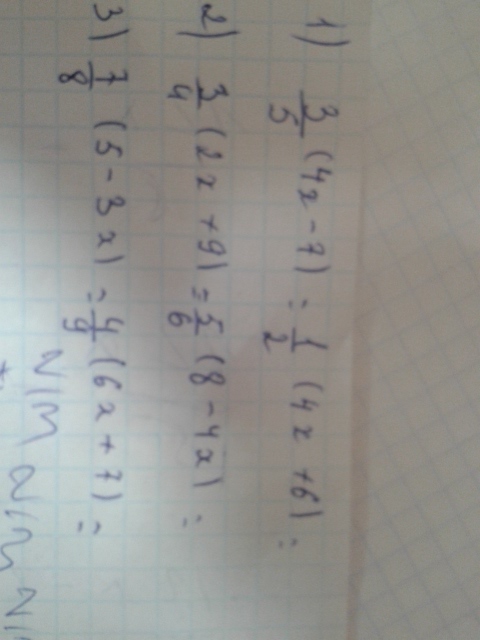 1) 3/5 (4x - 7) = 1/2 (4x + 6) =
2) 3/4 (2x + 9) = 5/6 (8 - 4x) =
3) 7/8 (5 - 3x) = 4/9 (6x + 7) =